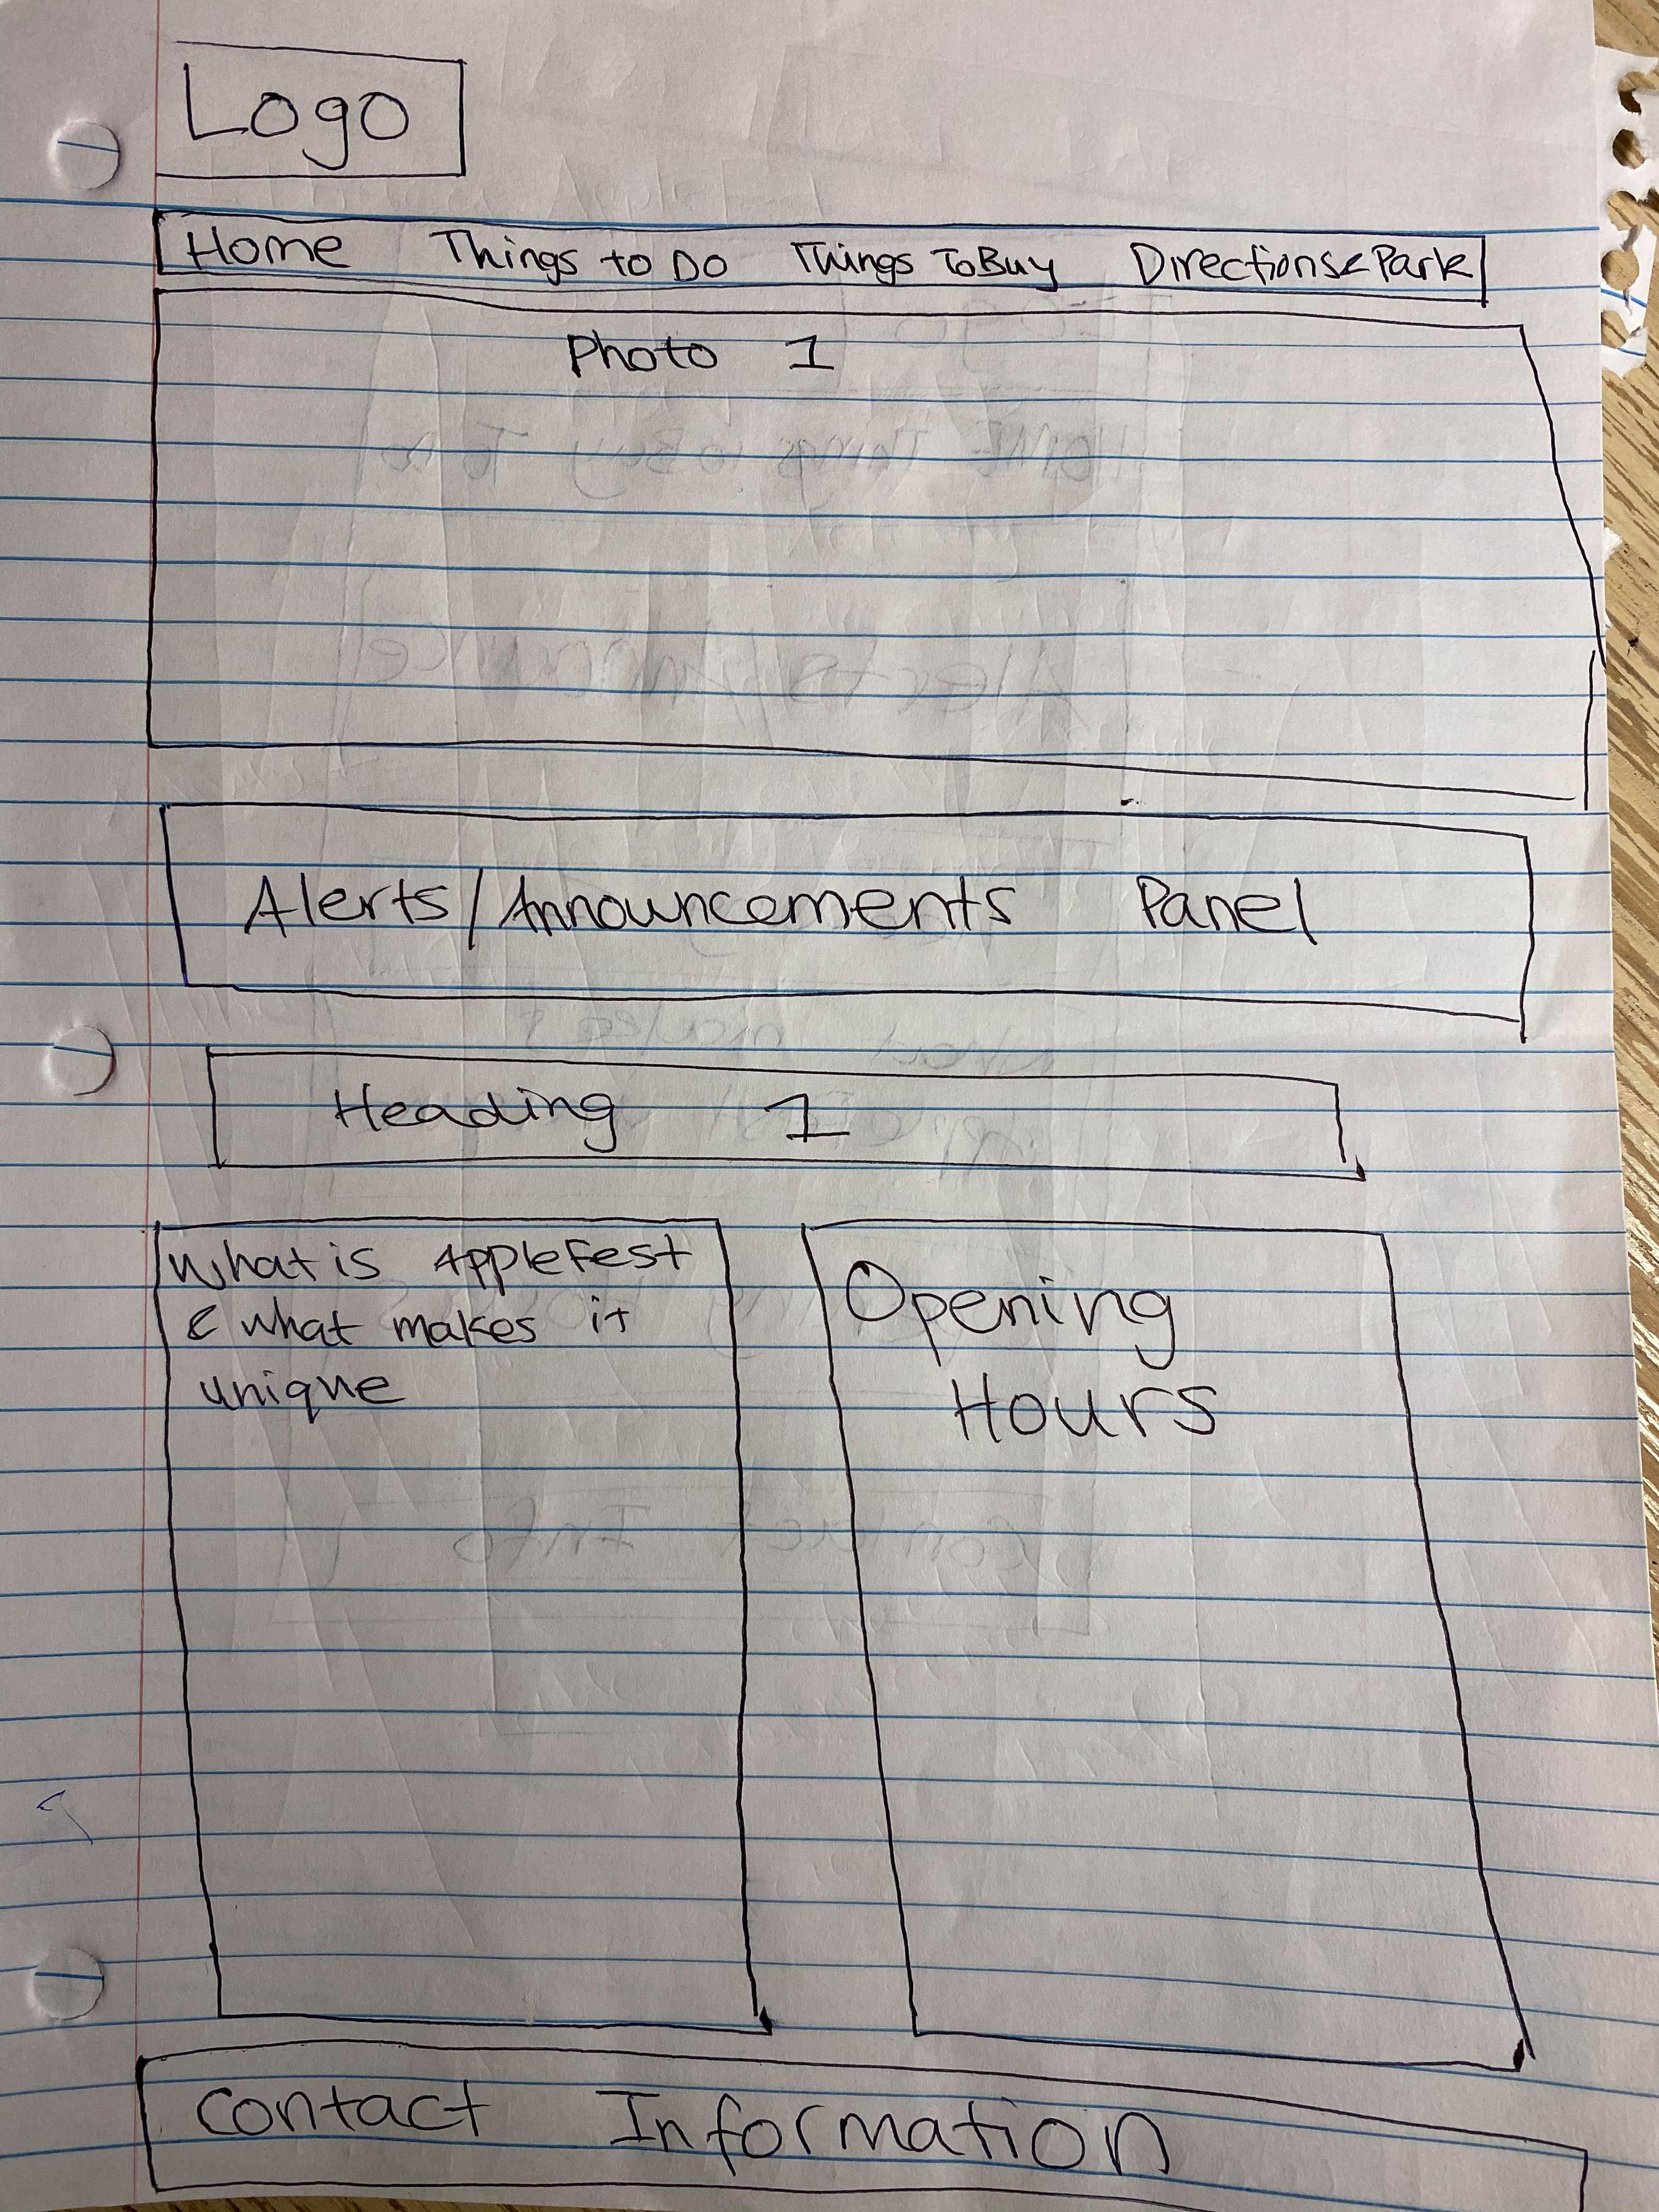 Logo
Home Things to Do Things To Buy Directions & Park
Photo 1
Alerts/Announcements Panel
Heading 1
What is AppleFest
& what makes it
unique
Opening
Hours
Contact Information